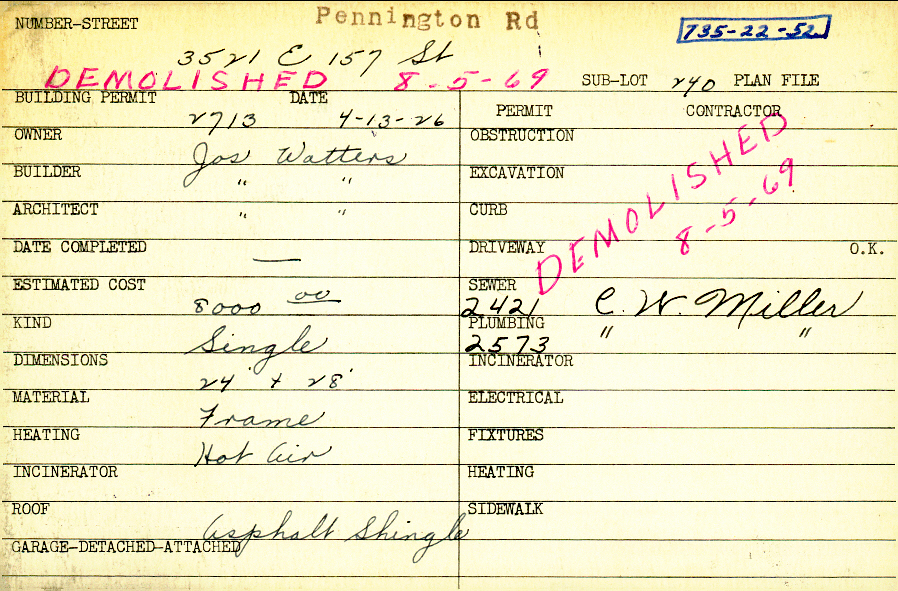 Pennington Rd
NUMBER-STREET 735-22-52
3521 E 157 St
DEMOLISHED 8-5-69 SUB-LOT 240 PLAN FILE
BUILDING PERMIT DATE PERMIT CONTRACTOR
2713 4-13-26
OWNER OBSTRUCTION
Jos Watters
BUILDER EXCAVATION
" "
ARCHITECT CURB
" "
DEMOLISHED
8-5-69
DATE COMPLETED DRIVEWAY O.K.
—
ESTIMATED COST SEWER
8000 00 2421 C. W. Miller
KIND PLUMBING
Single 2573 " "
DIMENSIONS INCINERATOR
24' + 28'
MATERIAL ELECTRICAL
Frame
HEATING FIXTURES
Hot Air
INCINERATOR HEATING
ROOF SIDEWALK
Asphalt Shingle
GARAGE-DETACHED-ATTACHED